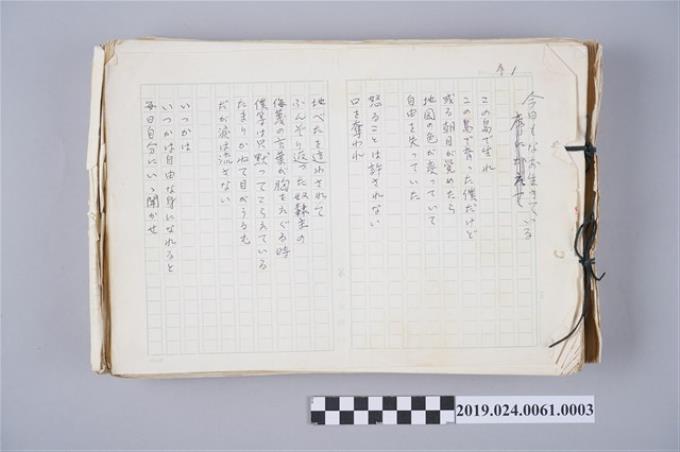 今日もなお生きている
この島で生れ
この島で育った僕だけど
或る朝目が覚めたら
地図の色が変っていて
自由を失っていた
怒ることは許されない
口を奪われ
地べたを這わされて
ふんぞり返った奴隷主の
侮蔑の言葉が胸をえぐる時
僕等は只黙ってこらえている
たまりかねて目がうるも
だが涙は流さない
いつかは
いつかは自由な身になれると
毎日自分にいゝ聞かせ
2019.024.0061.0003